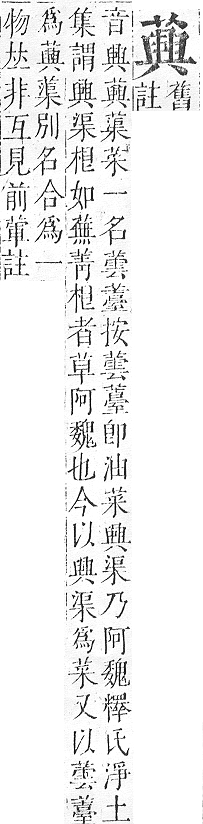 䕟
舊註
音興䕟蕖菜一名蕓薹按蕓薹卽油菜興渠乃阿魏釋氏淨土
集謂興渠根如蕪菁根者草阿魏也今以興渠爲菜又以蕓薹
爲䕟蕖別名合爲一
物𠀤非互見前葷註